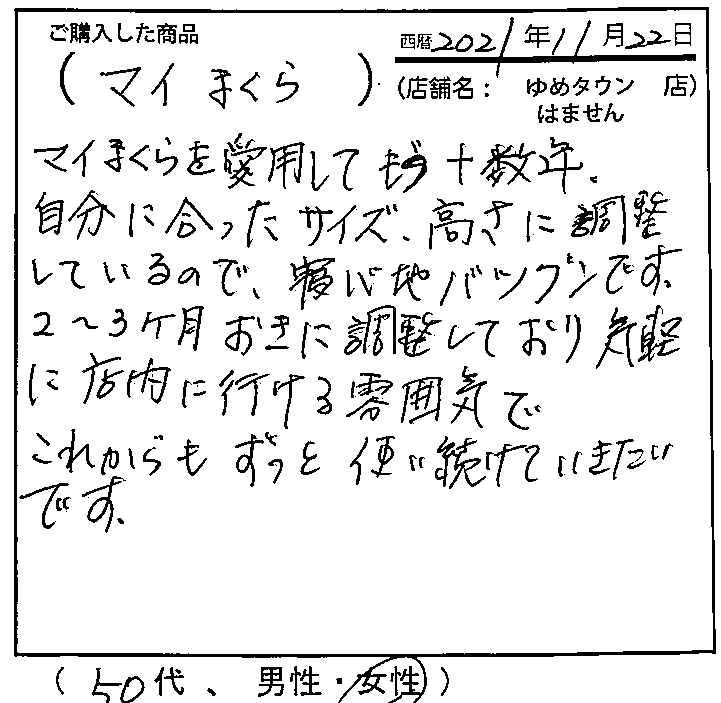 ご購入した商品
西暦2021年11月22日
(マイまくら)
(店舗名: ゆめタウン 店)
はません
マイまくらを愛用してもう十数年。
自分に合ったサイズ、高さに調整
しているので、寝心地バツグンです。
2～3ケ月おきに調整しており気軽
に店内に行ける雰囲気で
これからもずっと使い続けていきたい
です。
(50代、男性・女性)